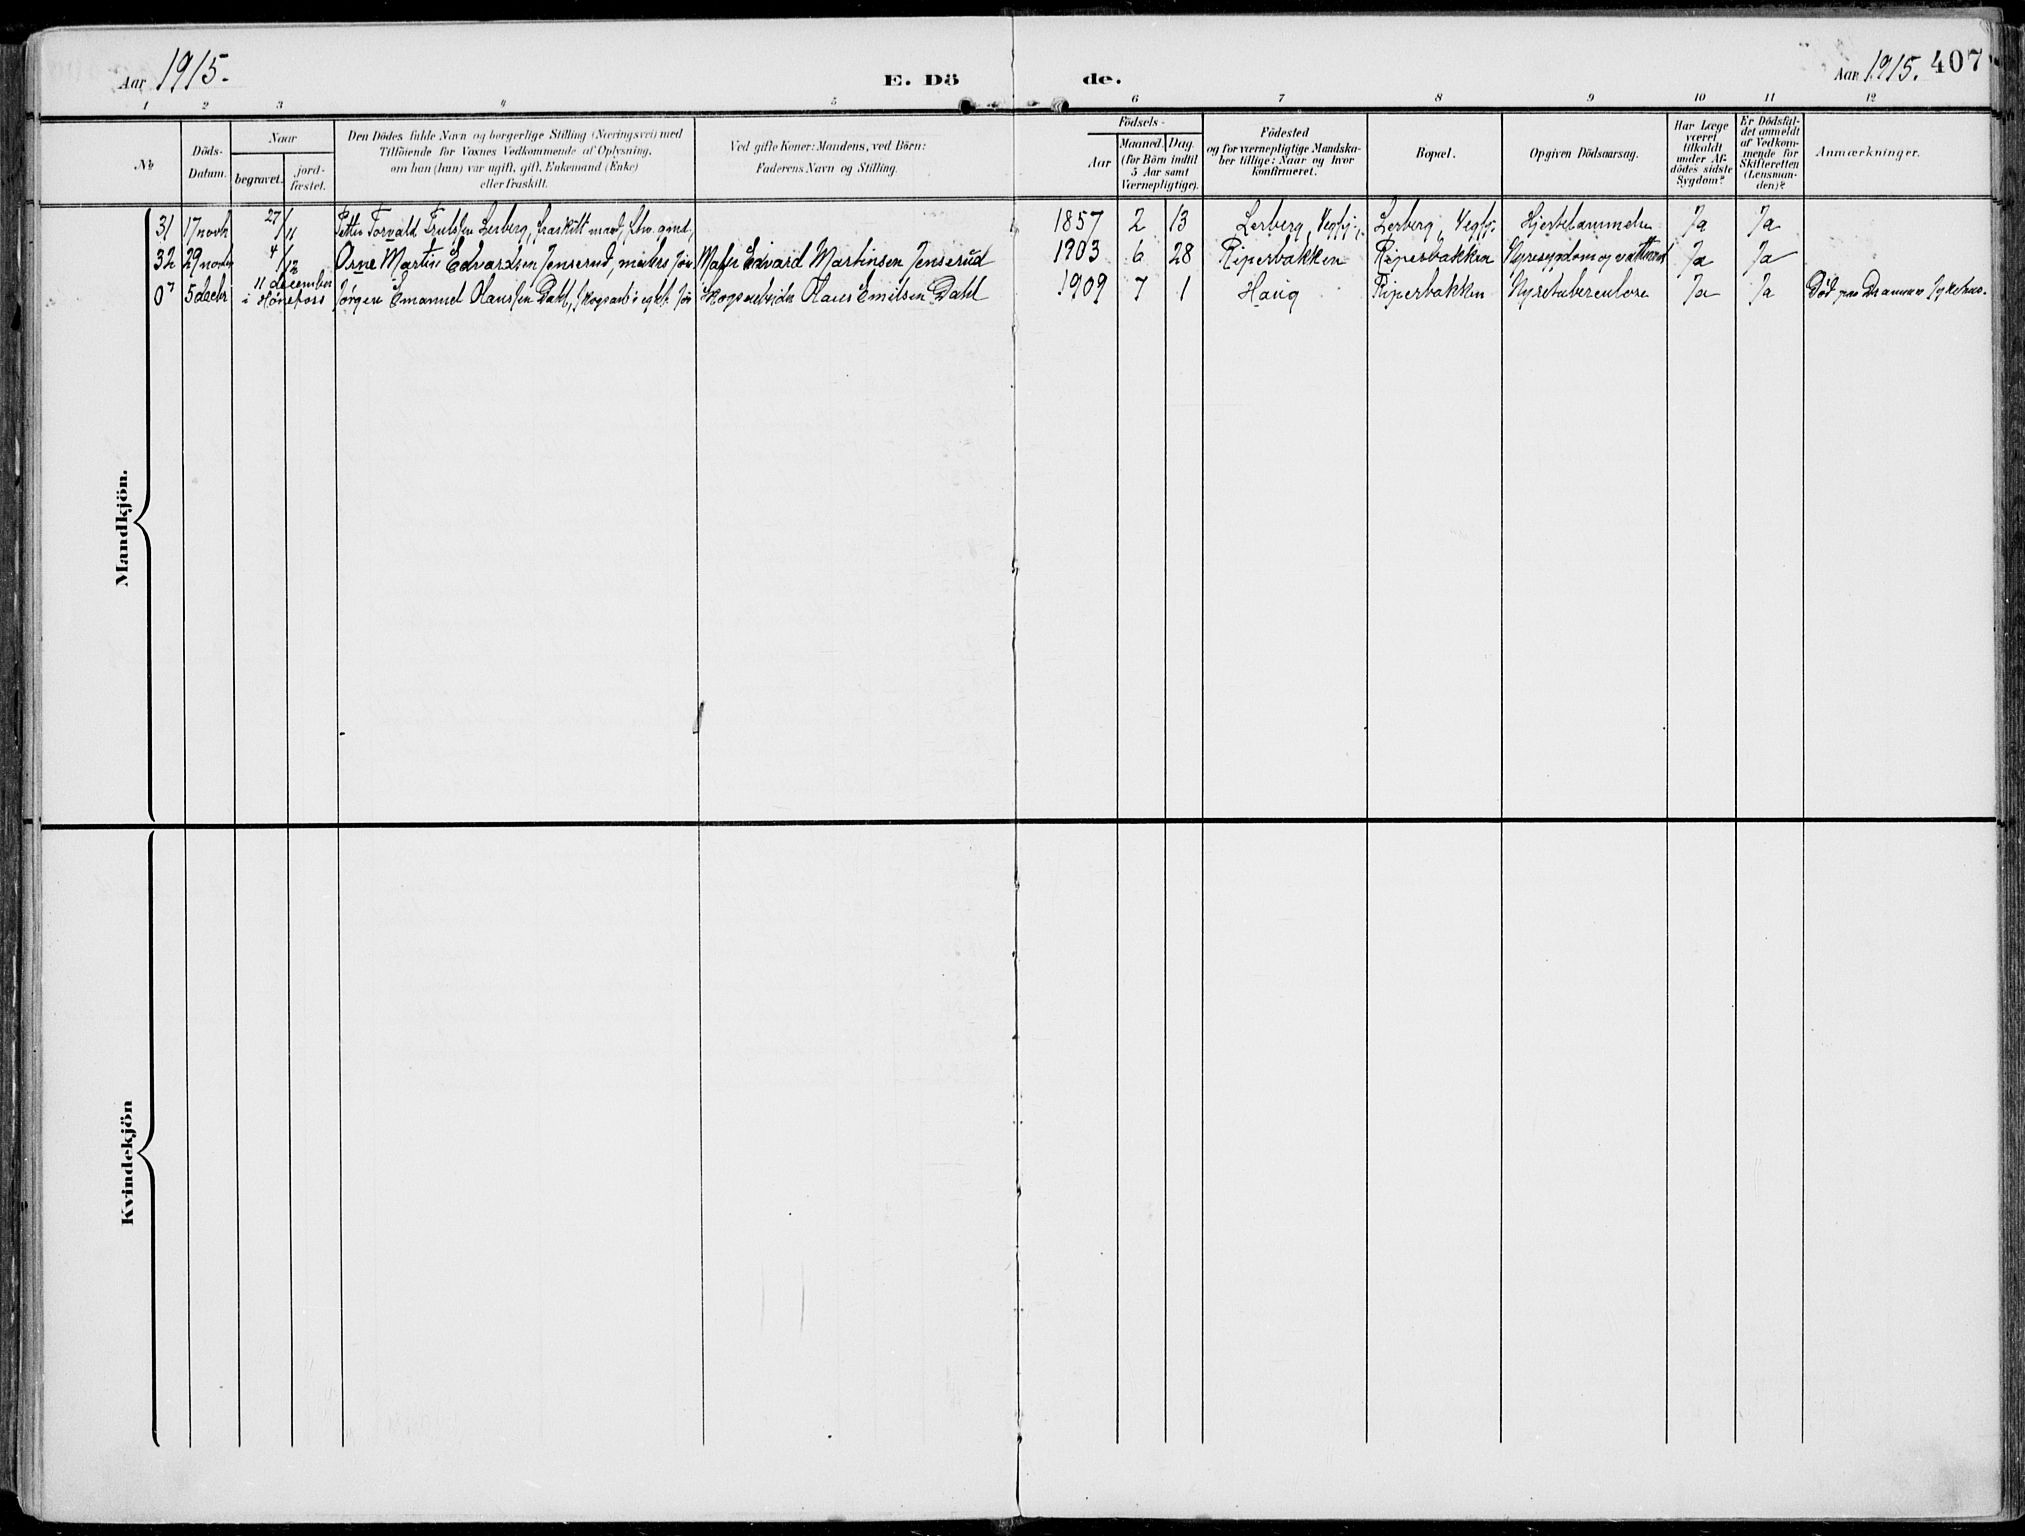 Aar 1915.
E. Dö
de.
Aar 1915. 407
1 2 3 4 5 6 7 8 9 10 11 12
No
Döds-Datum.
Naar
begravet.
jord-fæstet.
Den Dödes fulde Navn og borgerlige Stilling (Næringsvei) med
Tilföiende for Voxnes Vedkommende af Oplysning,
om hun (han) var ugift, gift, Enkemand (Enke)
eller fraskilt.
Ved gifte Koner: Mandens, ved Börn:
Faderens Navn og Stilling.
Födsels-
Aar
Maaned. Dag.
(for Börn indtil
5 Aar samt
Værnepligtige).
Födested
og for værnepligtige Mandska-
ber tillige: Naar og hvor
konfirmeret.
Bopæl.
Opgiven Dödsaarsag.
Har Læge
været
tilkaldt
under Af-
dödes sidste
Sygdom?
Er Dödsfal-
det anmeldt
af Vedkom-
mende for
Skifteretten
(Lensman-
den)?
Anmærkninger.
Mandkjön.
31 17 novb 27/11 Petter Torvald Trulsen Lerberg, fraskilt mand, 1857 2 13 Lerberg, Lerberg, Hjertelammelse Ja Ja
32 29 novb 4/12 Arne Martin Edvardsen Jenserud, Edvard Martinsen Jenserud 1903 6 28 Riperbakken Riperbakken Nyresygdom og vattersot Ja Ja
0 5 decbr 11 december i Hønefoss Jørgen Emanuel Olaussen Dahl, Skogsarbeider Olaus Emilsen Dahl 1909 7 1 Haug Riperbakken Nyretuberculose Ja Ja Död paa Drammen Sykehus.
Kvindekjön